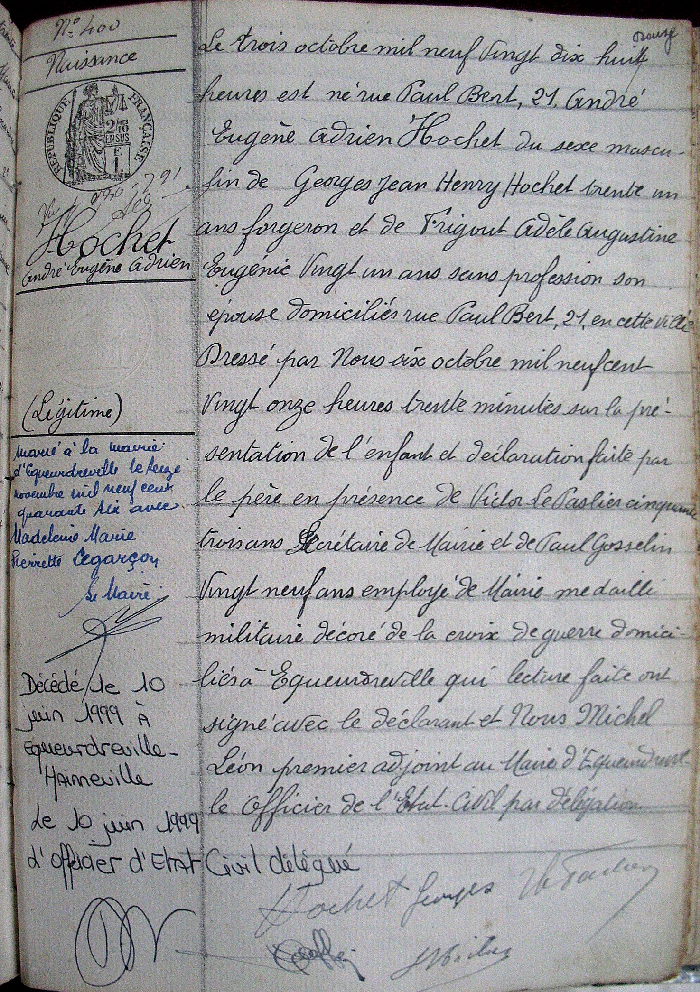 N° 400
Naissance
RÉPUBLIQUE FRANÇAISE
Hochet
André Eugène Adrien
(Légitime)
marié à la mairie
d'Equeurdreville le seize
novembre mil neuf cent
quarante six avec
Madeleine Marie
Pierrette Legarçon
Le Maire
Décédé le 10
juin 1999 à
Equeurdreville-
Hainneville
Le 10 juin 1999
d'Officier d'Etat Civil délégué
Le trois octobre mil neuf vingt dix huit
heures est né rue Paul Bert, 21, André
Eugène Adrien Hochet du sexe mascu-
lin de Georges Jean Henry Hochet trente un
ans forgeron et de Frigout Adèle Augustine
Eugénie vingt un ans sans profession son
épouse domiciliés rue Paul Bert, 21, en cette ville
Dressé par Nous six octobre mil neuf cent
vingt onze heures trente minutes sur la pré-
sentation de l'enfant et déclaration faite par
le père en présence de Victor Le Paslier cinquante
trois ans Secrétaire de Mairie et de Paul Gosselin
vingt neuf ans employé de Mairie médaillé
militaire décoré de la croix de guerre domici-
liés à Equeurdreville qui lecture faite ont
signé avec le déclarant et Nous Michel
Léon premier adjoint au Maire d'Equeurdreville
le Officier de l'Etat-Civil par délégation
Hochet Georges